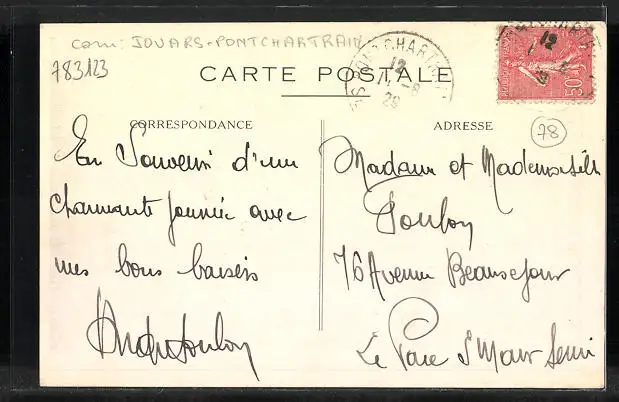 com: JOUARS-PONTCHARTRAIN
783123
CARTE POSTALE
PONTCHARTRAIN
12
11 -8
29
12
50c
CORRESPONDANCE
ADRESSE
78
En Souvenir d'une
charmante journée avec
mes bons baisers
Madame et Mademoiselle
Toulon
76 Avenue Beauséjour
Le Parc St Maur Seine